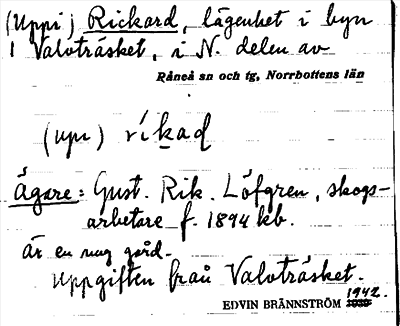 (Uppi) Rickard, lägenhet i byn
Valvträsket, i N. delen av
Råneå sn och tg, Norrbottens län
(upi) ríkad
Ägare: Gust. Rik. Löfgren, skogs-
arbetare f. 1894 kb.
är en nug gård.
Uppgiften från Valvträsket.
1942.
EDVIN BRÄNNSTRÖM 1939